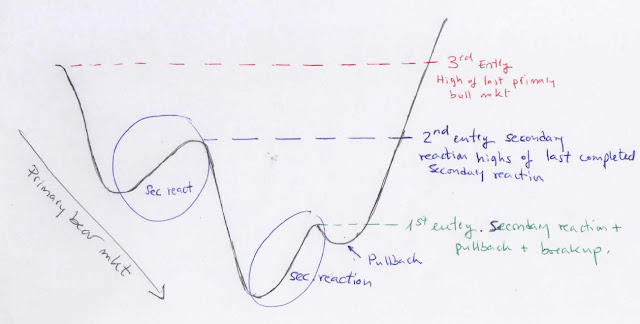 3rd Entry
High of last primary
bull mkt
2nd entry secondary
reaction highs of last completed
secondary reaction
sec react
Primary bear mkt
1st entry. Secondary reaction +
pullback + breakup.
Pullback
sec. reaction